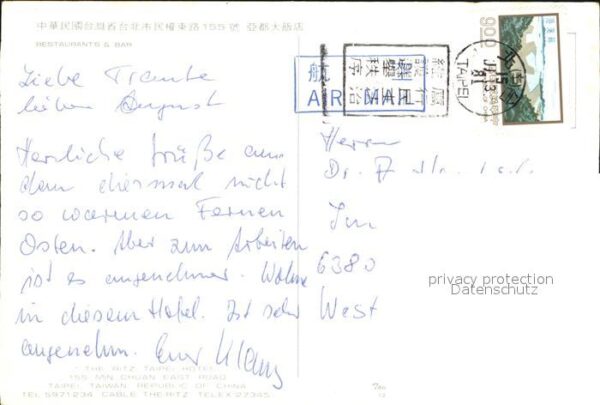 中華民國台灣省台北市民權東路155號 亞都大飯店
RESTAURANTS & BAR
Liebe Traute
lieber August
Herrliche Grüße aus
dem diesmal nicht
so warmen Fernen
Osten. Aber zum Arbeiten
ist es angenehmer. Wohne
in diesem Hotel. Ist sehr
angenehm. Euer Klaus
THE RITZ TAIPEI HOTEL
155 MIN CHUAN EAST ROAD
TAIPEI, TAIWAN REPUBLIC OF CHINA
TEL 5971234 CABLE THE RITZ TELEX 27345
航
AIR MAIL
TAIPEI
900
Herrn
Dr.
Im
6380
West
privacy protection
Datenschutz